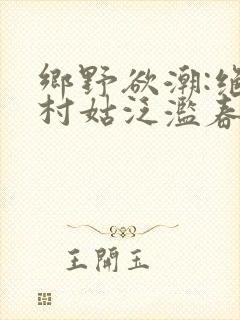 鄉野欲潮:絕
村姑泛濫春
王開玉